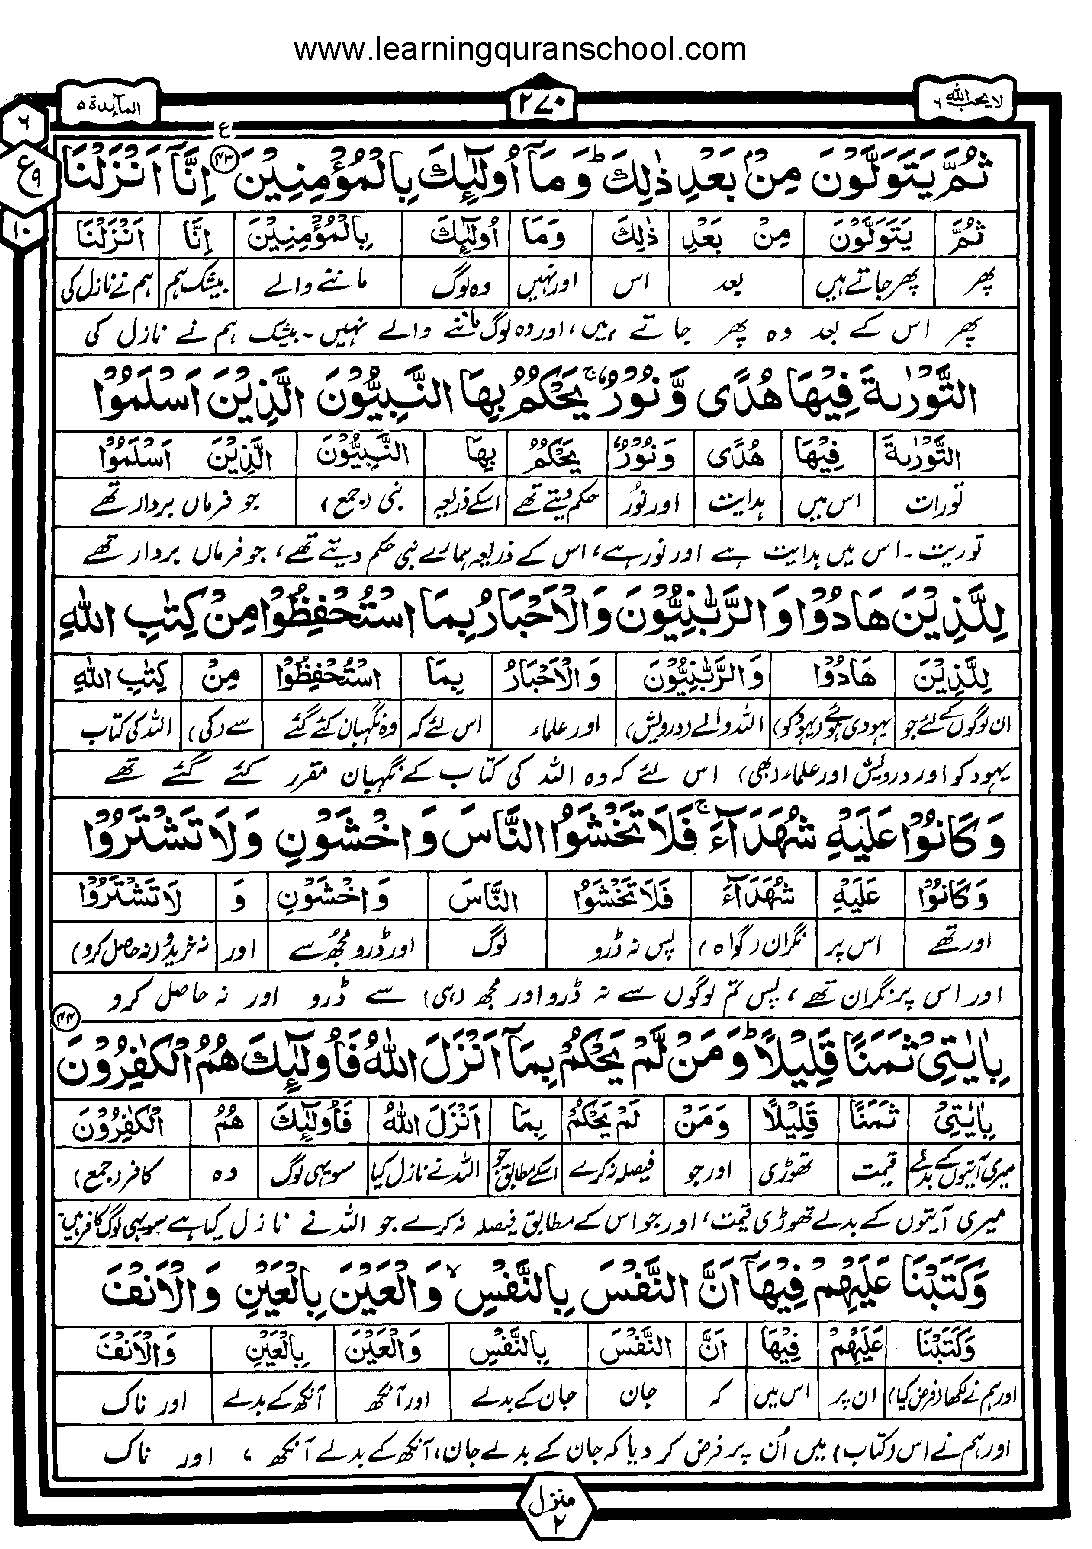 www.learningquranschool.com
المآبدة ۵
۲۷۰
لا یحب الله ۶
۶
ع
۹
۱۰
ع
ثُمَّ يَتَوَلَّوْنَ مِنْۢ بَعْدِ ذٰلِكَ ؕ وَمَاۤ اُولٰٓئِكَ بِالْمُؤْمِنِيْنَ ۴۳ اِنَّاۤ اَنْزَلْنَا
ثُمَّ يَتَوَلَّوْنَ مِنْۢ بَعْدِ ذٰلِكَ وَمَا اُولٰٓئِكَ بِالْمُؤْمِنِيْنَ اِنَّا اَنْزَلْنَا
پھر پھر جاتے ہیں بعد اس اور نہیں وہ لوگ ماننے والے بیشک ہم ہم نے نازل کی
پھر اس کے بعد وہ پھر جاتے ہیں، اور وہ لوگ ماننے والے نہیں۔ بیشک ہم نے نازل کی
التَّوْرٰىةَ فِيْهَا هُدًى وَّنُوْرٌ ۚ يَحْكُمُ بِهَا النَّبِيُّوْنَ الَّذِيْنَ اَسْلَمُوْا
التَّوْرٰىةَ فِيْهَا هُدًى وَنُوْرٌ يَحْكُمُ بِهَا النَّبِيُّوْنَ الَّذِيْنَ اَسْلَمُوْا
تورات اس میں ہدایت اور نور حکم دیتے تھے اسکے ذریعہ نبی (جمع) جو فرماں بردار تھے
توریت۔ اس میں ہدایت ہے اور نور ہے، اس کے ذریعہ ہمارے نبی حکم دیتے تھے، جو فرماں بردار تھے
لِلَّذِيْنَ هَادُوْا وَالرَّبّٰنِيُّوْنَ وَالْاَحْبَارُ بِمَا اسْتُحْفِظُوْا مِنْ كِتٰبِ اللّٰهِ
لِلَّذِيْنَ هَادُوْا وَالرَّبّٰنِيُّوْنَ وَالْاَحْبَارُ بِمَا اسْتُحْفِظُوْا مِنْ كِتٰبِ اللّٰهِ
ان لوگوں کے لئے جو یہودی ہوئے (یہود کو) اللہ والے (درویش) اور علماء اس لئے کہ وہ نگہبان کئے گئے سے (کی) اللہ کی کتاب
یہود کو اور درویش اور علماء (بھی) اس لئے کہ وہ اللہ کی کتاب کے نگہبان مقرر کئے گئے تھے
وَكَانُوْا عَلَيْهِ شُهَدَآءَ ۚ فَلَا تَخْشَوُا النَّاسَ وَاخْشَوْنِ وَلَا تَشْتَرُوْا
وَكَانُوْا عَلَيْهِ شُهَدَآءَ فَلَا تَخْشَوُا النَّاسَ وَاخْشَوْنِ وَ لَا تَشْتَرُوْا
اور تھے اس پر نگران (گواہ) پس نہ ڈرو لوگ اور ڈرو مجھ سے اور نہ خریدو (نہ حاصل کرو)
اور اس پر نگران تھے، پس تم لوگوں سے نہ ڈرو اور مجھ (ہی) سے ڈرو اور نہ حاصل کرو
بِاٰيٰتِيْ ثَمَنًا قَلِيْلًا ؕ وَمَنْ لَّمْ يَحْكُمْ بِمَاۤ اَنْزَلَ اللّٰهُ فَاُولٰٓئِكَ هُمُ الْكٰفِرُوْنَ ۴۴
بِاٰيٰتِيْ ثَمَنًا قَلِيْلًا وَمَنْ لَمْ يَحْكُمْ بِمَا اَنْزَلَ اللّٰهُ فَاُولٰٓئِكَ هُمُ الْكٰفِرُوْنَ
میری آیتوں کے بدلے قیمت تھوڑی اور جو فیصلہ نہ کرے اسکے مطابق جو اللہ نے نازل کیا سو یہی لوگ وہ کافر (جمع)
میری آیتوں کے بدلے تھوڑی قیمت، اور جو اس کے مطابق فیصلہ نہ کرے جو اللہ نے نازل کیا ہے سو یہی لوگ کافر ہیں
وَكَتَبْنَا عَلَيْهِمْ فِيْهَاۤ اَنَّ النَّفْسَ بِالنَّفْسِ ۙ وَالْعَيْنَ بِالْعَيْنِ وَالْاَنْفَ
وَكَتَبْنَا عَلَيْهِمْ فِيْهَا اَنَّ النَّفْسَ بِالنَّفْسِ وَالْعَيْنَ بِالْعَيْنِ وَالْاَنْفَ
اور ہم نے لکھا (فرض کیا) ان پر اس میں کہ جان جان کے بدلے اور آنکھ آنکھ کے بدلے اور ناک
اور ہم نے اس (کتاب) میں اُن پر فرض کر دیا کہ جان کے بدلے جان، آنکھ کے بدلے آنکھ، اور ناک
منزل ۲